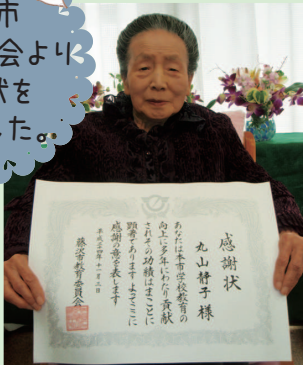 市
会より
状を
した。
感謝状
丸山静子様
あなたは本市学校教育の
向上に多年にわたり貢献
されその功績はまことに
顕著でありますよってここに
感謝の意を表します
平成二十四年十一月三日
藤沢市教育委員会